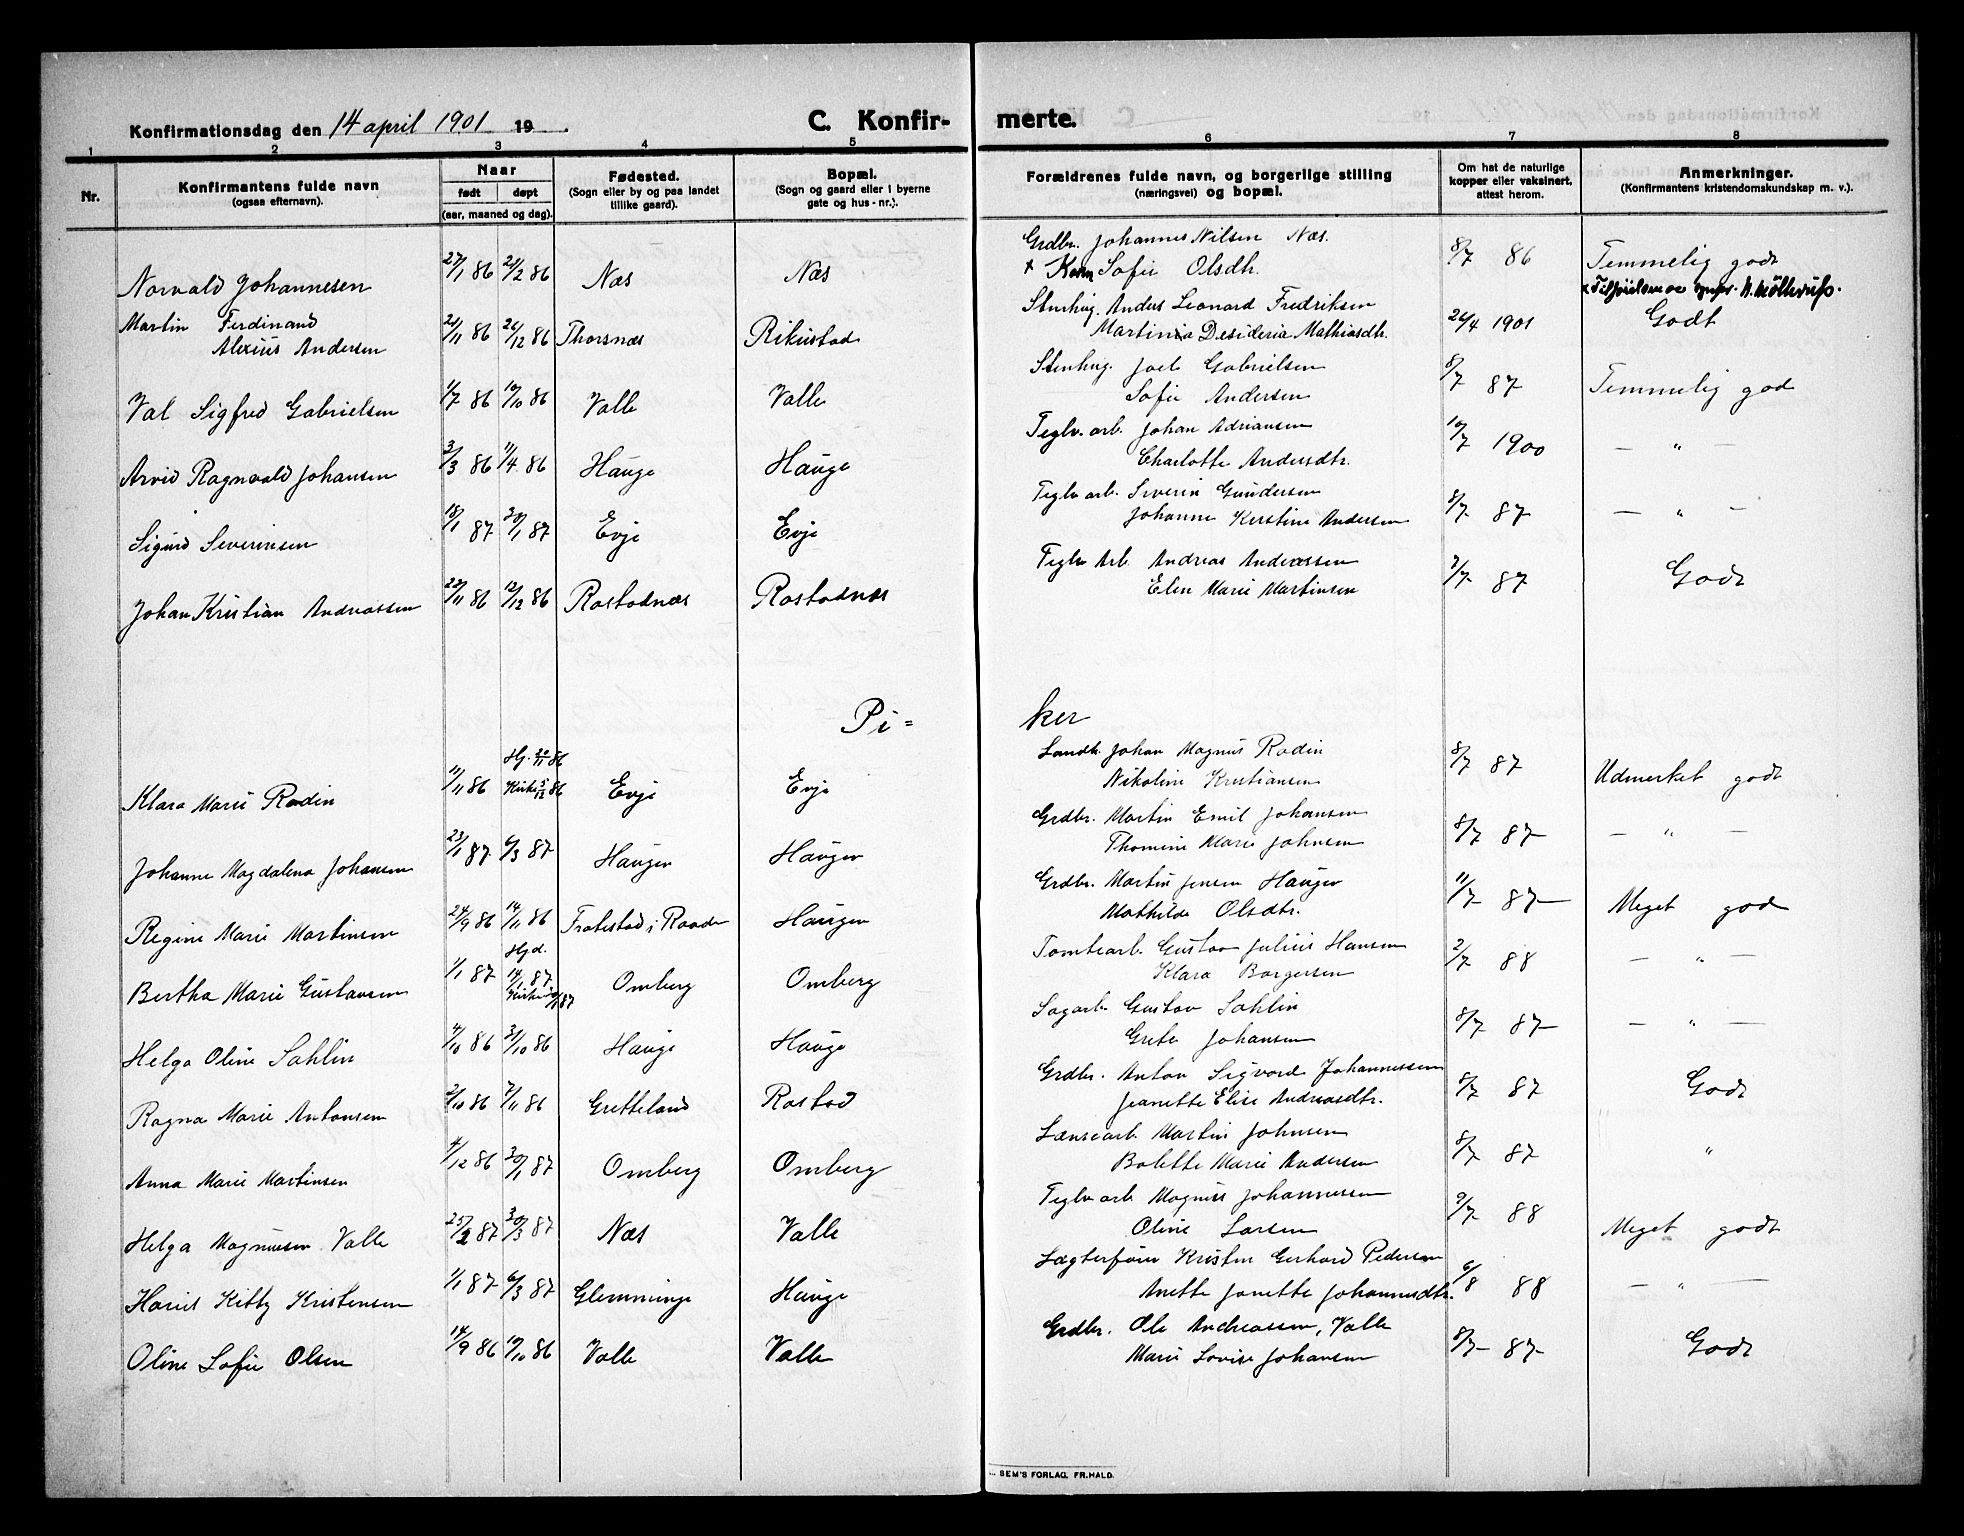 Konfirmationsdag den 14 april 1901 19
C. Konfir- merte.
1 2 3 4 5 6 7 8
Nr.
Konfirmantens fulde navn
(ogsaa efternavn).
Naar
født døpt
(aar, maaned og dag).
Fødested.
(Sogn eller by og paa landet
tillike gaard).
Bopæl.
(Sogn og gaard eller i byerne
gate og hus-nr.).
Forældrenes fulde navn, og borgerlige stilling
(næringsvei) og bopæl.
Om hat de naturlige
kopper eller vaksinert,
attest herom.
Anmerkninger.
(Konfirmantens kristendomskundskap m. v.).
Grdbr. Johannes Nilsen Næs.
Norvald Johannesen 27/1 86 21/2 86 Næs Næs + Kona Sofie Olsdh. 8/7 86 Temmelig godt
Stenhug. Anders Leonard Fredriksen
Martin Ferdinand
Alexius Andersen 21/11 86 26/12 86 Thorsnæs Rikustad Martinia Desideria Mathiasdtr. 26/4 1901 Godt
Stenhug. Joel Gabrielsen
Val Sigfred Gabrielsen 1/7 86 10/10 86 Valle Valle Sofie Andersen 8/7 87 Temmelig god
Teglv. arb. Johan Adriansen
Arvid Ragnvald Johansen 3/3 86 11/4 86 Hauge Hauge Charlotte Andersdtr. 10/7 1900 — " —
Teglv arb. Severin Gundersen
Sigurd Severinsen 18/1 87 30/1 87 Evje Evje Johanne Kerstine Andersen 8/7 87 — " —
Teglv Arb. Andreas Andreassen
Johan Kristian Andreassen 22/11 86 12/12 86 Rostadnæs Rostadnæs Elen Marie Martinsen 7/7 87 Godt
Pi= ker
Landh. Johan Magnus Rodin
Hj. 20/11 86
Klara Marie Rodin 11/11 86 Kirke 5/12 86 Evje Evje Nikoline Kristiansen 8/7 87 Udmerket godt
Grdbr. Martin Emil Johansen
Johanne Magdalena Johansen 23/1 87 6/3 87 Haugen Haugen Thomine Marie Johnsen 8/7 87 — " —
Grdbr. Martin Jensen Haugen
Regine Marie Martinsen 24/9 86 14/11 86 Fratestad i Raade Haugen Mathilde Olsdtr. 11/7 87 Meget god
Tomtearb. Gustav Julius Hansen
Hjd.
Bertha Marie Gustavsen 1/1 87 14/1 87 Omberg Omberg Klara Borgersen 2/7 88 — " —
Sagarb. Gustav Sahlin
Helga Oline Sahlin 4/10 86 31/10 86 Hauge Hauge Grete Johansen 8/7 87 — " —
Grdbr. Anton Sigvard Johannessen
Ragna Marie Antonsen 2/10 86 7/11 86 Gretteland Rostad Jeanette Elise Andreasdtr. 8/7 87 Godt
Lænsearb. Martin Johnsen
Anna Marie Martinsen 4/12 86 30/1 87 Omberg Omberg Bolette Marie Andersen 8/7 87 "
Teglv arb. Magnus Johannessen
Helga Magnussen Valle 25/2 87 30/3 87 Næs Valle Oline Larsen 9/7 88 Meget godt
Lægterfører Kristen Gerhard Pedersen
Hariet Kitty Kristensen 1/1 87 6/3 87 Glemminge Hauge Anette Janette Johannesdtr. 6/8 88 — " —
Grdbr. Ole Andreassen, Valle
Oline Sofie Olsen 14/9 86 10/10 86 Valle Valle Marie Lovise Johansen 8/7 87 Godt
SEM'S FORLAG, FR.HALD.